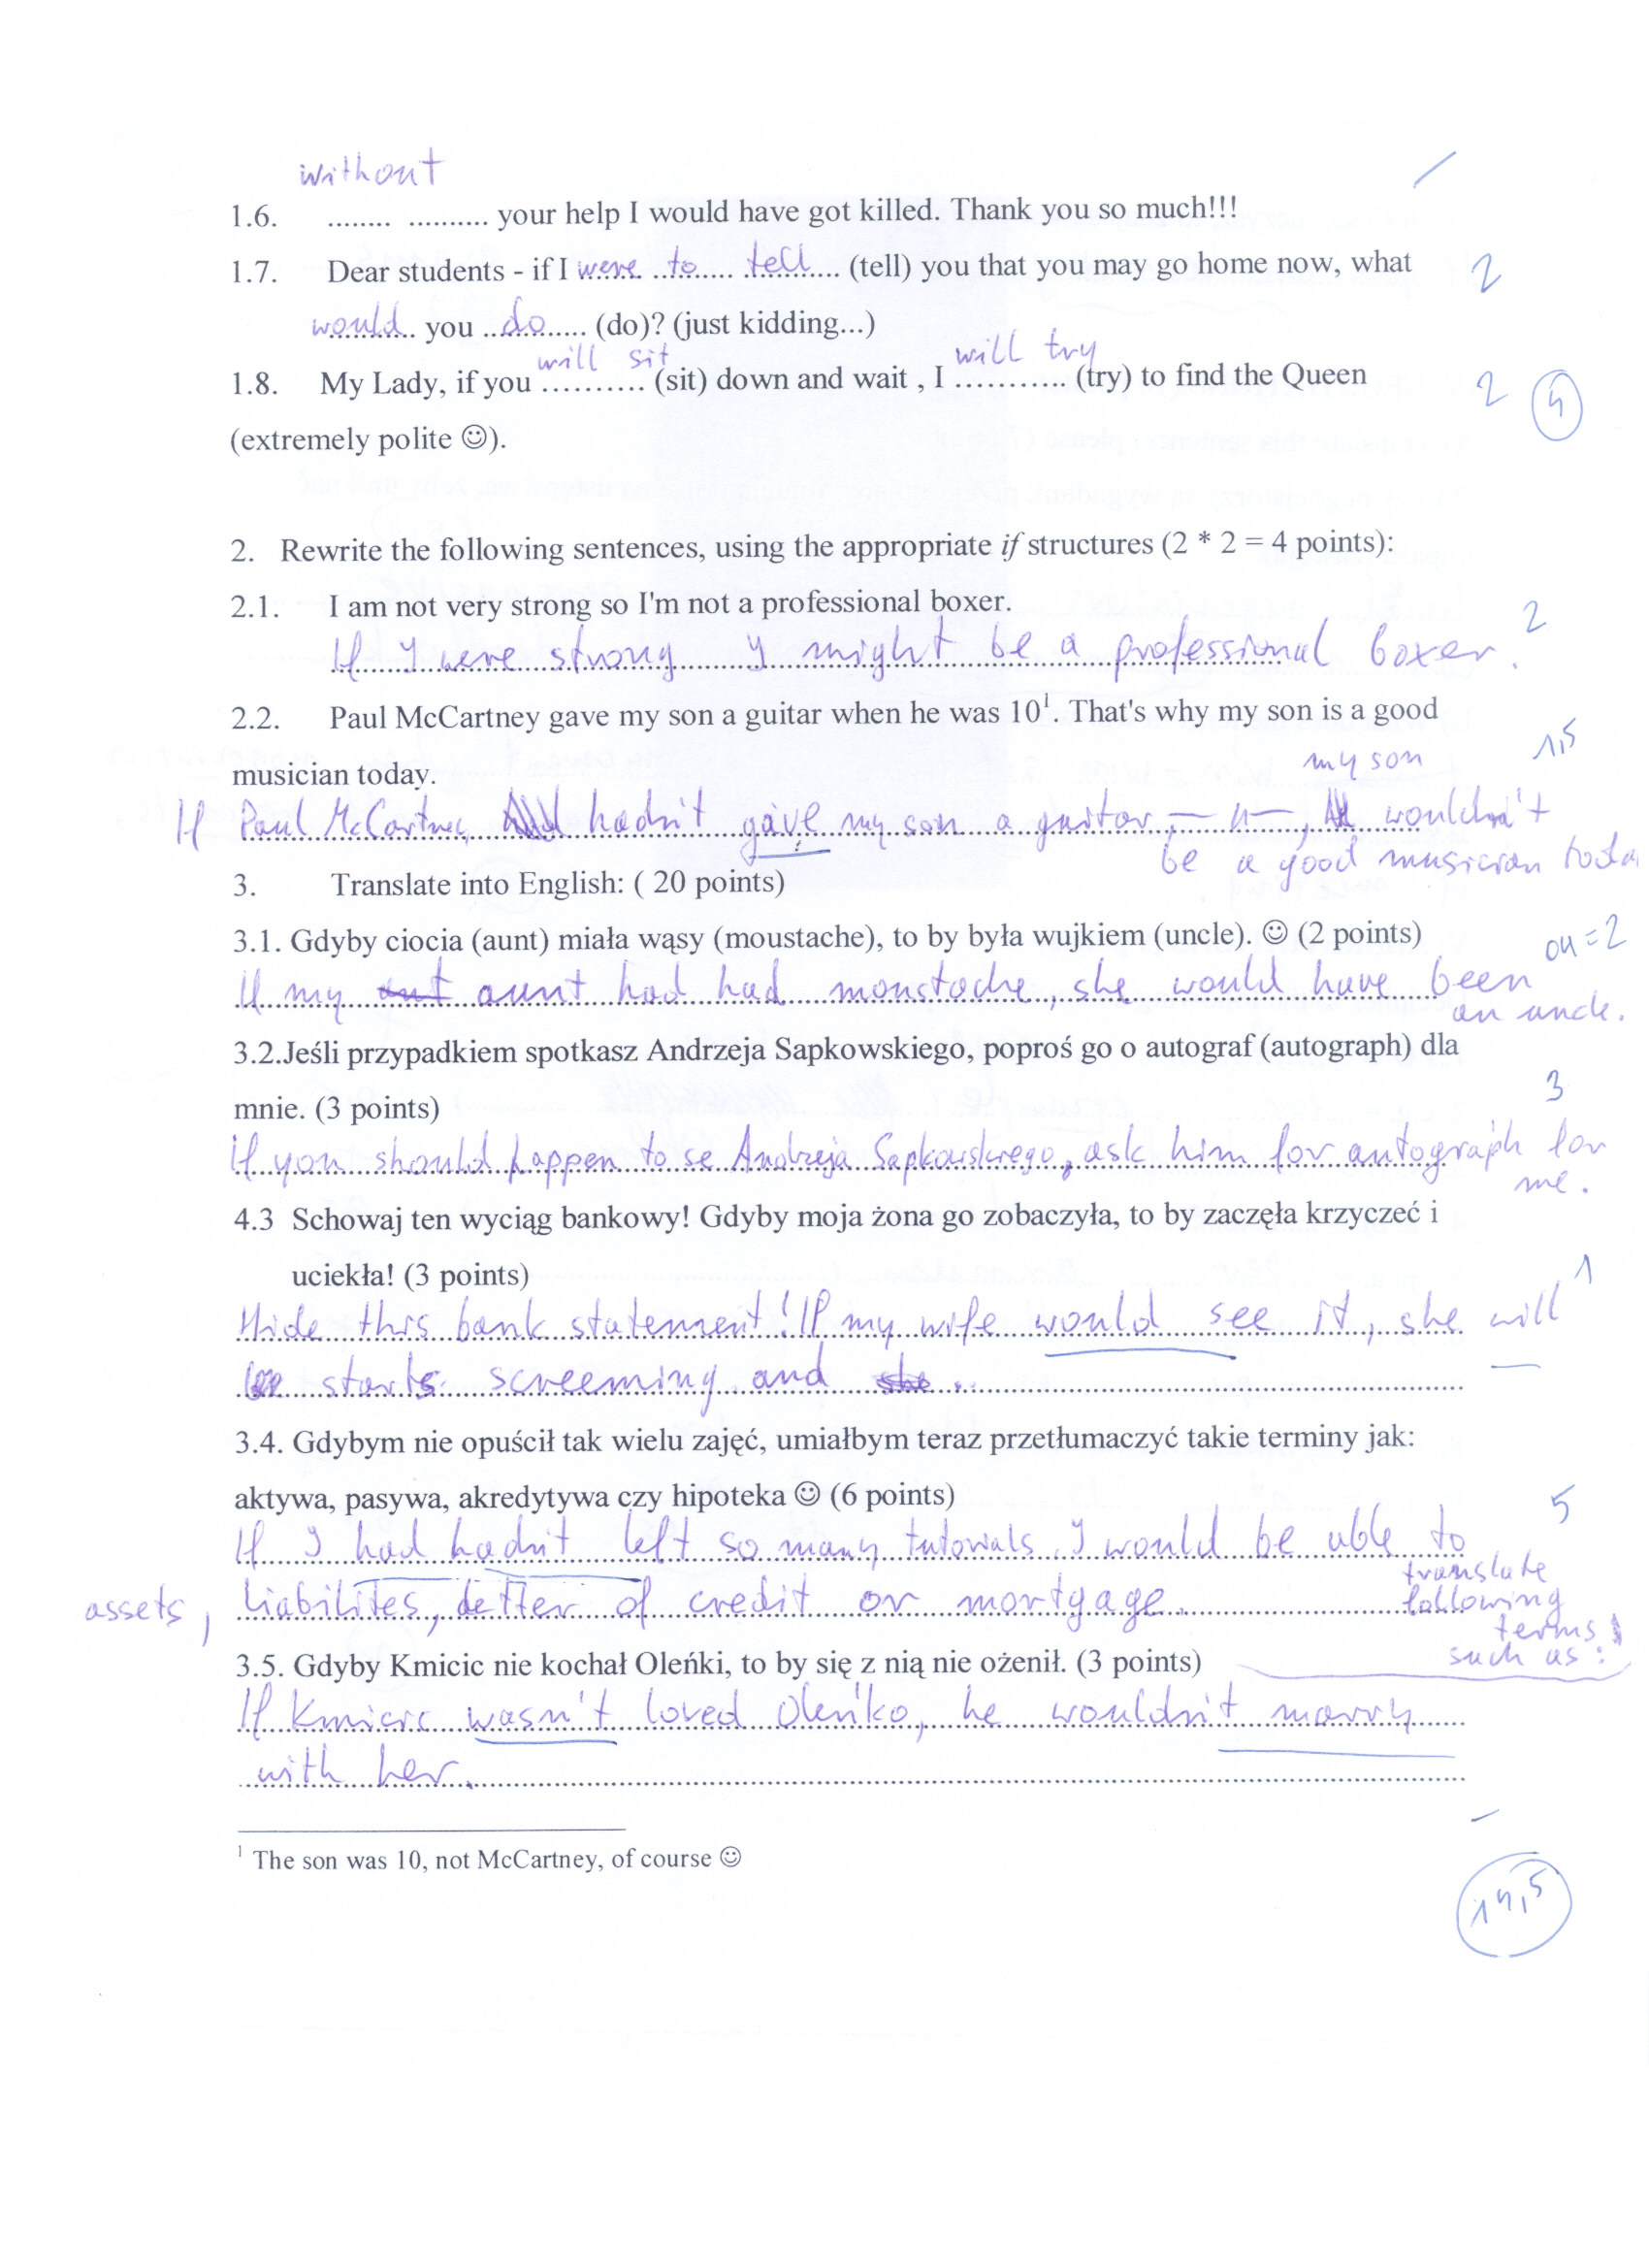 without
1.6. ........ .......... your help I would have got killed. Thank you so much!!!
1.7. Dear students - if I were to tell (tell) you that you may go home now, what 2
would you do (do)? (just kidding...)
will sit will try
1.8. My Lady, if you .......... (sit) down and wait , I ........... (try) to find the Queen 2 4
(extremely polite ☺).
2. Rewrite the following sentences, using the appropriate if structures (2 * 2 = 4 points):
2.1. I am not very strong so I'm not a professional boxer. 2
If I were strong I might be a professional boxer.
2.2. Paul McCartney gave my son a guitar when he was 10¹. That's why my son is a good
musician today. my son 1,5
If Paul McCartney hadn't give my son a guitar, — „ —, wouldn't
be a good musician toda
3. Translate into English: ( 20 points)
3.1. Gdyby ciocia (aunt) miała wąsy (moustache), to by była wujkiem (uncle). ☺ (2 points) =2
If my aunt had had moustache, she would have been
an uncle.
3.2.Jeśli przypadkiem spotkasz Andrzeja Sapkowskiego, poproś go o autograf (autograph) dla
mnie. (3 points) 3
If you should happen to se Andrzeja Sapkowskiego, ask him for autograph for
me.
4.3 Schowaj ten wyciąg bankowy! Gdyby moja żona go zobaczyła, to by zaczęła krzyczeć i
uciekła! (3 points) 1
Hide this bank statement! If my wife would see it, she will
start screeming and
3.4. Gdybym nie opuścił tak wielu zajęć, umiałbym teraz przetłumaczyć takie terminy jak:
aktywa, pasywa, akredytywa czy hipoteka ☺ (6 points) 5
If I had hadn't left so many tutorials I would be able to
translate
following
terms
such as:
assets, liabilites, letter of credit or mortgage.
3.5. Gdyby Kmicic nie kochał Oleńki, to by się z nią nie ożenił. (3 points)
If Kmicic wasn't loved Oleńko, he wouldn't marry
with her.
¹ The son was 10, not McCartney, of course ☺
14,5